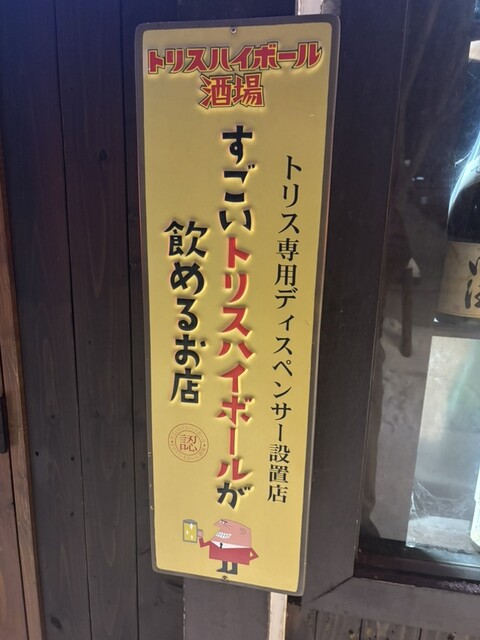 トリスハイボール
酒場
トリス専用ディスペンサー設置店
すごいトリスハイボールが
飲めるお店
認